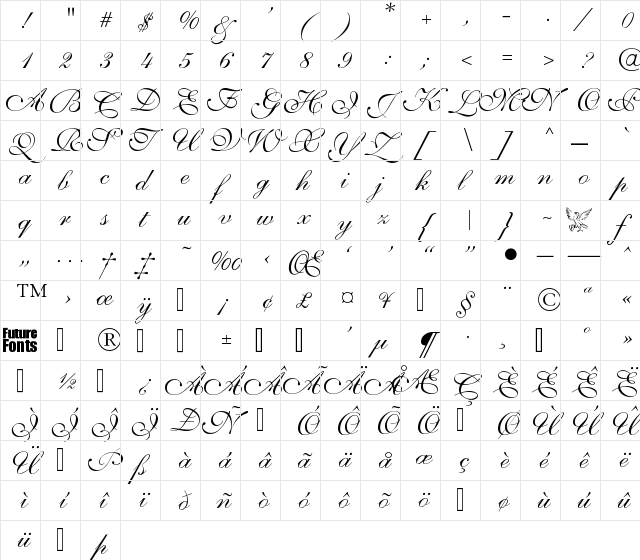 ! " # $ % & ' ( ) * + , - . / 0
1 2 3 4 5 6 7 8 9 : ; < = > ? @
A B C D E F G H I J K L M N O P
Q R S T U V W X Y Z [ \ ] ^ _ `
a b c d e f g h i j k l m n o p
q r s t u v w x y z { | } ~ ƒ
„ … † ‡ ˜ ‰ ‹ Œ ‘ ’ “ ” • – — ˆ
™ › œ ÿ ¡ ¢ £ ¤ ¥ § ¨ © ª «
Future Fonts ® ± ´ µ ¶ · ¸ º »
½ ¿ À Á Â Ã Ä Å Æ Ç È É Ê Ë
Ì Í Î Ï Ð Ñ Ó Ô Õ Ö Ø Ù Ú Û
Ü Þ ß à á â ã ä å æ ç è é ê ë
ì í î ï ð ñ ò ó ô õ ö ø ù ú û
ü þ